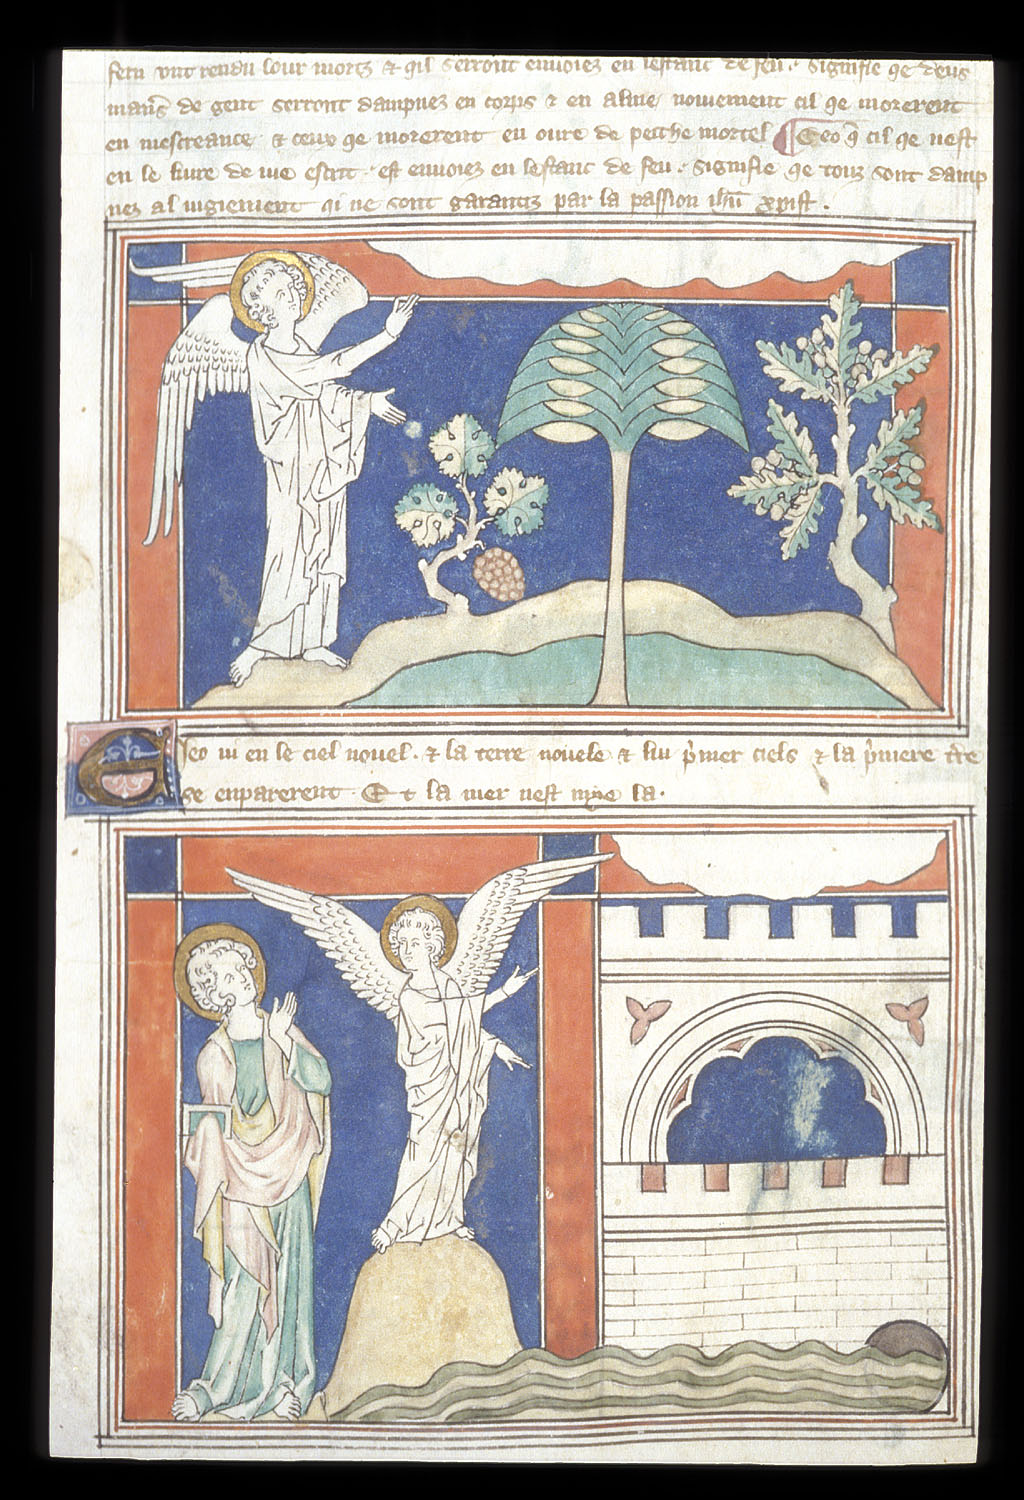 feru unt rendu lour mortz & qil serront enuoiez en lestanc de feu . signifie qe deus
maners de gent serront dampnez en corps & en alme nouiement cil qe morerent
en mescreance & ceux qe morerent en oure de pecche mortel ¶ Ceo q̄ cil qe nest
en le liure de vie escrit . est enuoiez en lestanc de feu . signifie qe touz sont damp
nez al iugiement qi ne sont garantiz par la passion ihū xpist .
Eeo vi en le ciel nouel . & la terre nouele & lui p̄mer ciels & la p̄miere t̄re
se enparerent . E t la mer nest mye la .